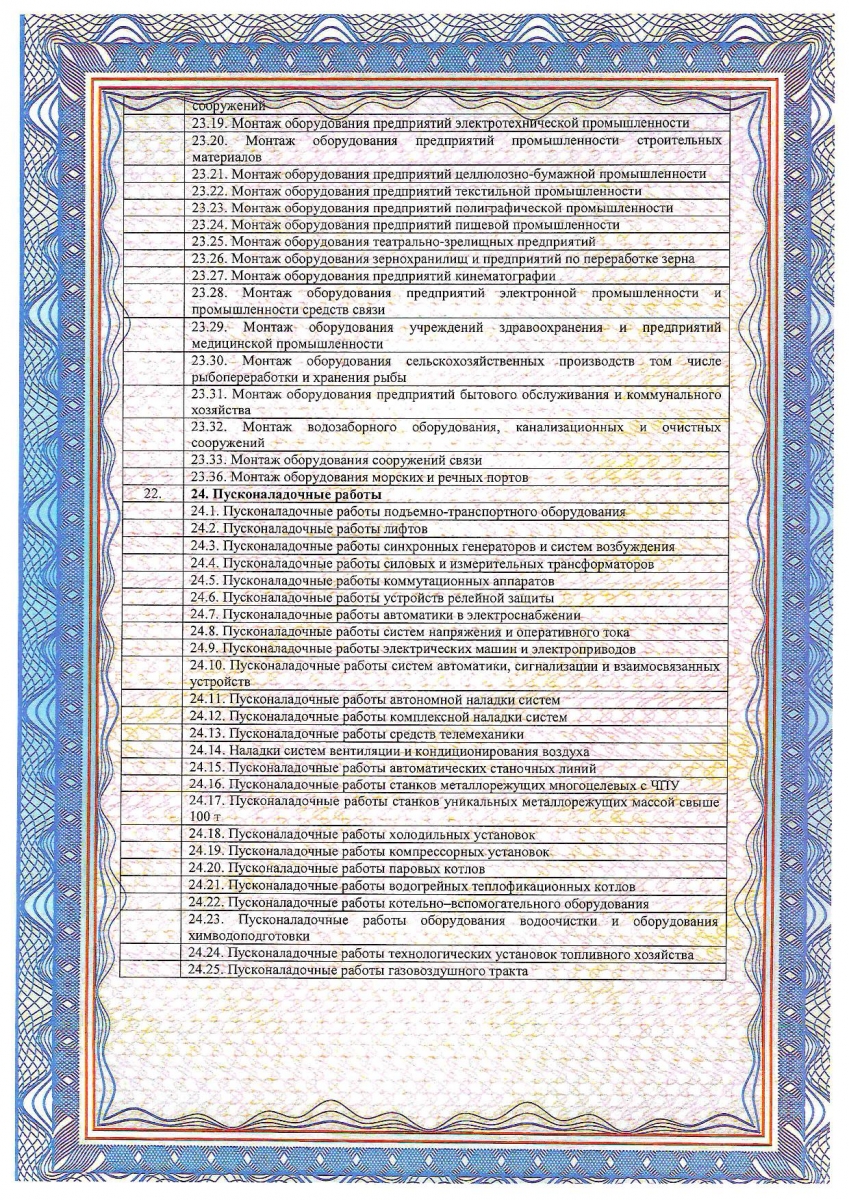 сооружений
23.19. Монтаж оборудования предприятий электротехнической промышленности
23.20. Монтаж оборудования предприятий промышленности строительных
материалов
23.21. Монтаж оборудования предприятий целлюлозно-бумажной промышленности
23.22. Монтаж оборудования предприятий текстильной промышленности
23.23. Монтаж оборудования предприятий полиграфической промышленности
23.24. Монтаж оборудования предприятий пищевой промышленности
23.25. Монтаж оборудования театрально-зрелищных предприятий
23.26. Монтаж оборудования зернохранилищ и предприятий по переработке зерна
23.27. Монтаж оборудования предприятий кинематографии
23.28. Монтаж оборудования предприятий электронной промышленности и
промышленности средств связи
23.29. Монтаж оборудования учреждений здравоохранения и предприятий
медицинской промышленности
23.30. Монтаж оборудования сельскохозяйственных производств том числе
рыбопереработки и хранения рыбы
23.31. Монтаж оборудования предприятий бытового обслуживания и коммунального
хозяйства
23.32. Монтаж водозаборного оборудования, канализационных и очистных
сооружений
23.33. Монтаж оборудования сооружений связи
23.36. Монтаж оборудования морских и речных портов
22. 24. Пусконаладочные работы
24.1. Пусконаладочные работы подъемно-транспортного оборудования
24.2. Пусконаладочные работы лифтов
24.3. Пусконаладочные работы синхронных генераторов и систем возбуждения
24.4. Пусконаладочные работы силовых и измерительных трансформаторов
24.5. Пусконаладочные работы коммутационных аппаратов
24.6. Пусконаладочные работы устройств релейной защиты
24.7. Пусконаладочные работы автоматики в электроснабжении
24.8. Пусконаладочные работы систем напряжения и оперативного тока
24.9. Пусконаладочные работы электрических машин и электроприводов
24.10. Пусконаладочные работы систем автоматики, сигнализации и взаимосвязанных
устройств
24.11. Пусконаладочные работы автономной наладки систем
24.12. Пусконаладочные работы комплексной наладки систем
24.13. Пусконаладочные работы средств телемеханики
24.14. Наладки систем вентиляции и кондиционирования воздуха
24.15. Пусконаладочные работы автоматических станочных линий
24.16. Пусконаладочные работы станков металлорежущих многоцелевых с ЧПУ
24.17. Пусконаладочные работы станков уникальных металлорежущих массой свыше
100 т
24.18. Пусконаладочные работы холодильных установок
24.19. Пусконаладочные работы компрессорных установок
24.20. Пусконаладочные работы паровых котлов
24.21. Пусконаладочные работы водогрейных теплофикационных котлов
24.22. Пусконаладочные работы котельно–вспомогательного оборудования
24.23. Пусконаладочные работы оборудования водоочистки и оборудования
химводоподготовки
24.24. Пусконаладочные работы технологических установок топливного хозяйства
24.25. Пусконаладочные работы газовоздушного тракта